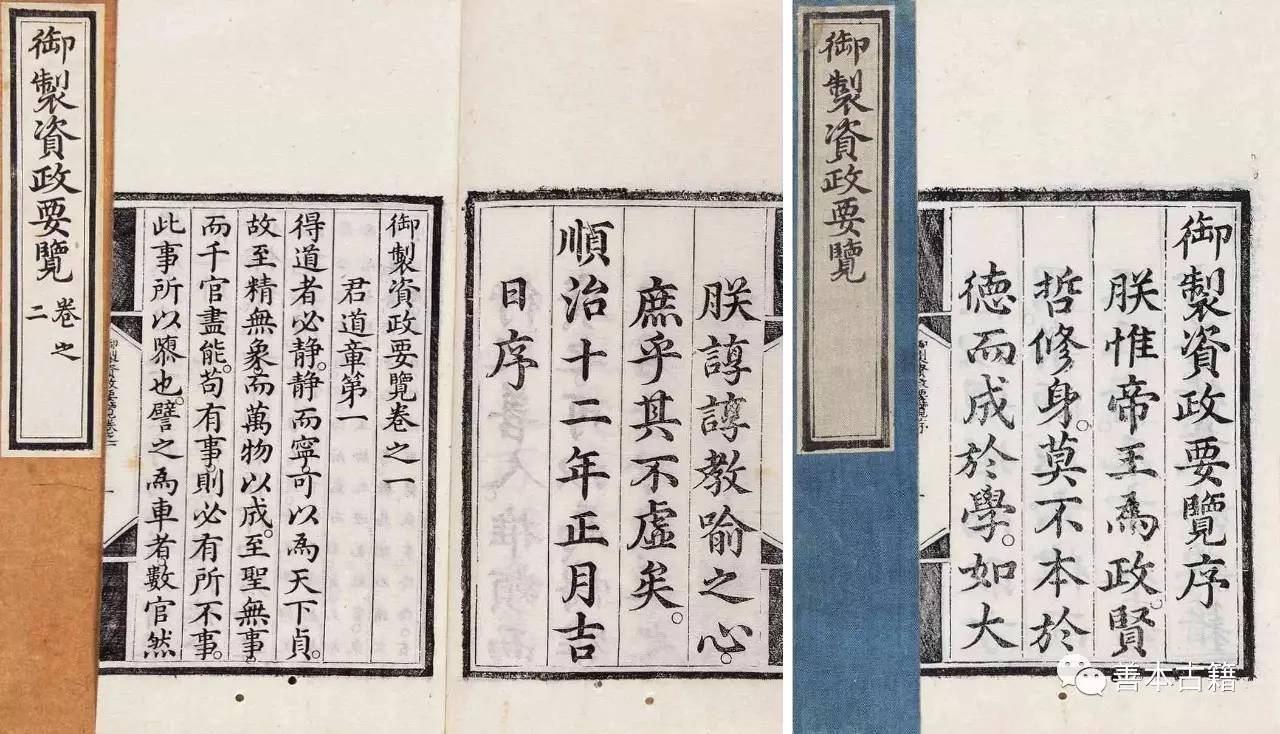 御製資政要覽序
朕惟帝王為政。賢
哲修身。莫不本於
德而成於學。如大
御製資政要覽
朕諄諄教喻之心。
庶乎其不虛矣。
順治十二年正月吉
日序
御製資政要覽卷之一
君道章第一
得道者必静。静而寧。可以為天下貞。
故至精無象。而萬物以成。至聖無事。
而千官盡能。苟有事。則必有所不事。
此事所以隳也。譬之為車者。數官然
御製資政要覽
卷之
二
善本古籍